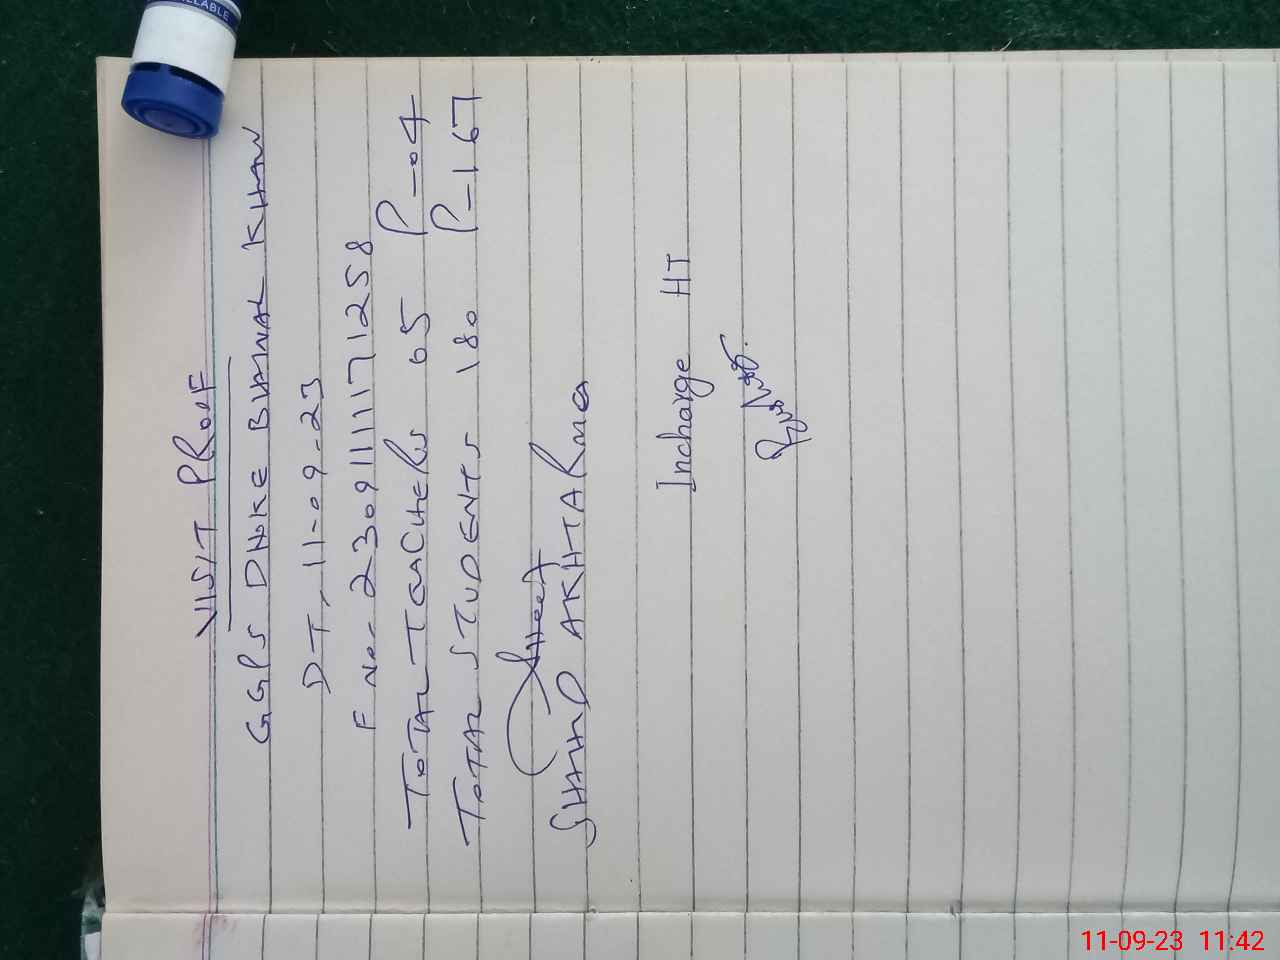 VISIT PROOF
GGPS DHOKE BHANAL KHAN
DT, 11-09-23
F No- 23091111171258
TOTAL TEACHERS 05 P-04
TOTAL STUDENTS 180 P-167
SHAHID AKHTAR
Incharge HT
11-09-23 11:42